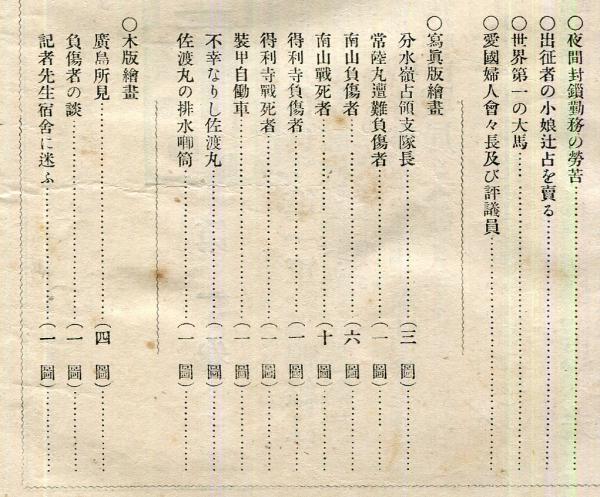 ○夜間封鎖勤務の勞苦
○出征者の小娘辻占を賣る
○世界第一の大馬
○愛國婦人會々長及び評議員
○寫眞版繪畫
分水嶺占領支隊長（三圖）
常陸丸遭難負傷者（一圖）
南山負傷者（六圖）
南山戰死者（十圖）
得利寺負傷者（一圖）
得利寺戰死者（一圖）
裝甲自働車（一圖）
不幸なりし佐渡丸（一圖）
佐渡丸の排水喞筒（一圖）
○木版繪畫
廣島所見（四圖）
負傷者の談（一圖）
記者先生宿舍に迷ふ（一圖）